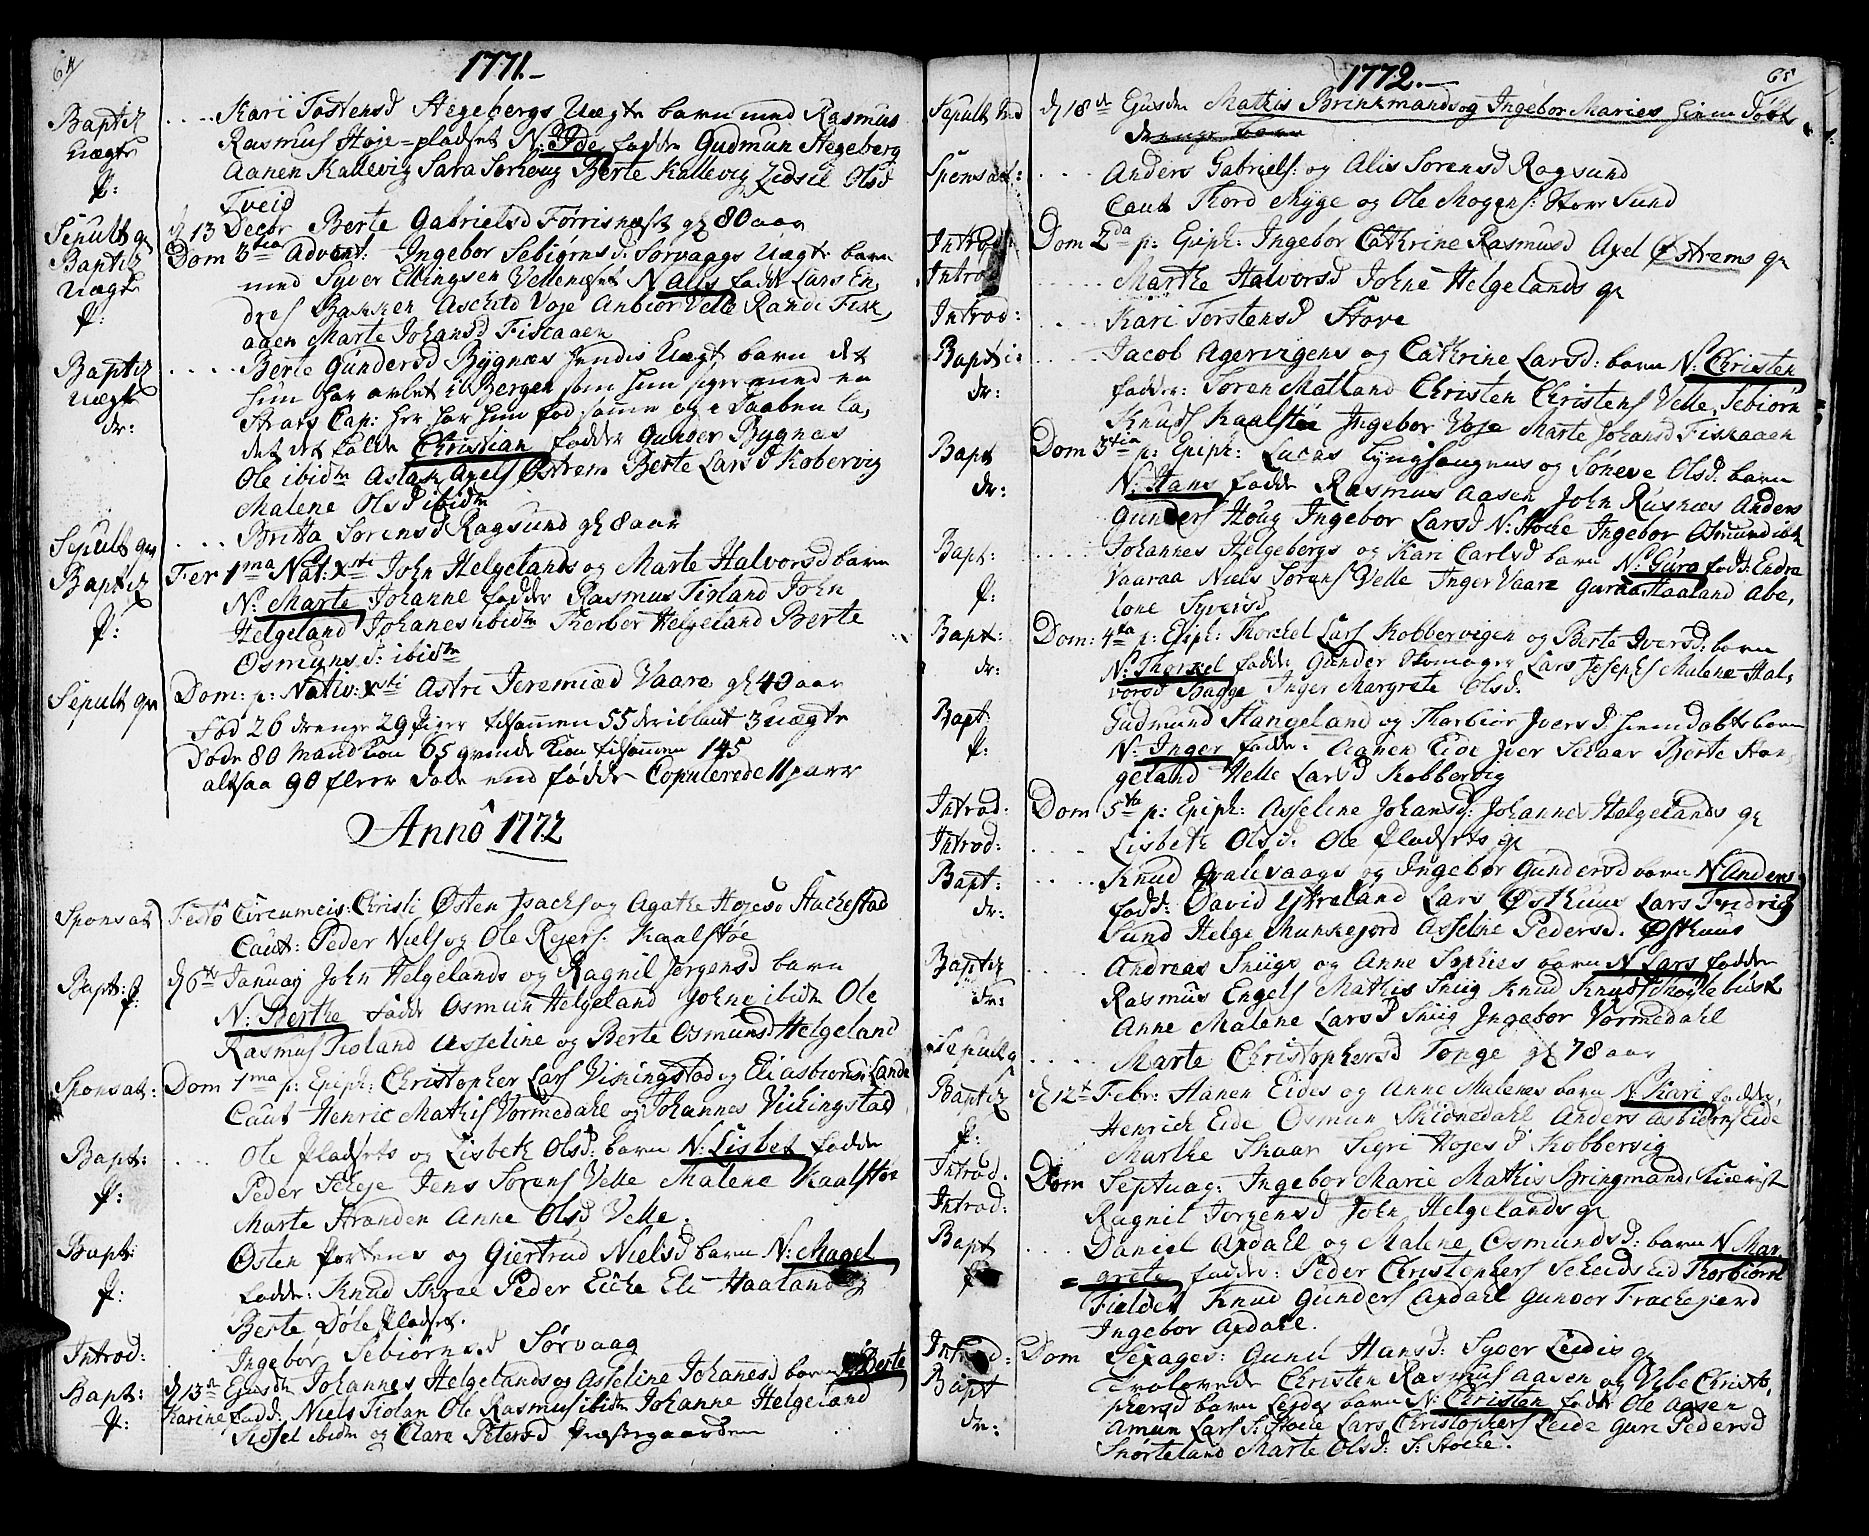 64
1771.
Baptiz .... Kari Tostensd Hegebergs Uægte barn med Rasmus
Uægte Rasmus Høie-pladset N: Ide fadde Gudmun Hegeberg
P: Aanen Kallevig Sara Berte Kallevig Zidsil Olsd
Tveid
Sepult qv d 13 Decbr Berte Gabrielsd Førrisnæss gl 80 aar
Baptiz Dom 3tia Advent: Ingebor Sebiørnsd: Sørvaags Uægte barn
Uægte med Syver Ellingsen N Alis fadde Lars En
P: dres Bakken Aschild Voje Anbiør Velle Randi Fisk,
aaen Marte Johansd Fiskaaen
Baptiz .... Berte Gundersd Bygnæs hendis Uægte barn det
Uægte hun har avlet i Bergen som hun siger med en
dr: Cap: her har hun fød samme og i daaben la,
det det kalde Christian fadder Gunder Bygnæs
Ole ibidm Aslak Axels Østrem Berte Larsd Kobervig
Malene Olsd ibidm
Sepult qv .... Britta Sørensd Ragsund gl 8 aar
Baptiz Fer 1ma Nat: Xsti John Helgelands og Marte Halvorsd barn
N: Marte Johanne fadder Rasmus Tioland John
P: Helgeland Johanes ibidm Thorber Helgeland Berte
Osmunds: ibidm
Sepult qv Dom: p: Nativ: Xsti Astri Jeremiæd Vaara gl 40 aar
Fød 26 drenge 29 piger tilsammen 55 deriblant 3 uægte
Døde 80 mandkiøn 65 qvindekiøn tilsammen 145
altsaa 90 flere døde end fødde Copulerede 11 paar
Anno 1772
Sponsat Festo Circumcis: Christi Østen Isachs og Agathe Hojesd Stackestad
Caut: Peder Niels og Ole Rejers: Kaalstoe
Bapt: P: d 6te January John Helgelands og Ragnil Jørgensd barn
N: Berthe fadde Osmun Helgeland Johne ibidm Ole
Rasmus Tioland Asseline og Berte Osmunsd Helgeland
Sponsat: Dom 1ma p: Epiph: Christopher Lars Vishingstad og Eli Asbiørnsd Lande
Caut Henric Mathis Vormedahl og Johannes Vichingstad
Bapt: .... Ole Pladsets og Lisbeth Olsd: barn N: Lisbet fadde
P: Peder Jens Sørens Velle Malene Kaalstoe
Marte Stranden Anne Olsd Velle.
Bapt: Østen Portens og Giertrud Nielsd barn N: Magel
P: fadde: Knud Skree Peder Eicke Eli Haaland og
Berte Døle Pladset.
Introd: .. Ingebor Sebiørnsd Sørvaag
Bapt: d 13de Ejusdm Johannes Helgelands og Asseline Johanesd barn N Berte
P: Karine fadd: Niels Tiolan Ole Rasmus ibidm Johanne Helgeland
Sidsel ibidm og Clara Petersd Præstegaarden
65
1772.
Sepult d 18de Ejusdm Mathis Brinkmands og Ingebor Maries hiemdøbte
drenge barn
Sponsat: .... Anders Gabriels: og Alis Sørensd Ragsund
Caut Thord Myge og Ole Mogens: Store Sund
Introd Dom 2da p: Epiph: Ingebor Cathrine Rasmusd Axel Østrems qv
Introd ..... Marthe Halvorsd Johne Helgelands qv
Introd: .... Kari Torstensd Stove
Bapti: .... Jacob Agervigens og Cathrine Larsd: barn N: Christen
dr: fadder: Søren Matland Christen Christens Velle, Sebiørn
Knuds Kaalstoe Ingebor Voje Marte Johansd Fiskaaen
Bapt Dom 3tia p: Epiph: Lucas Lynghaugens og Søneve Olsd. barn
dr: N: Hans fadde Rasmus Aasen John Rusnæs Anders
Gunders Houg Ingebor Larsd N: Stocke Ingebor Osmund ibt
Bapt: .... Johannes Helgebergs og Kari Carlsd barn N: Guro fadd: Endre
P: Vaaraa Niels Sørens Velle Inger Vaara Guraa Haaland Abe,
lone Syvers
Bapt: Dom: 4ta p: Epiph: Thorckel Lars Kobbervigen og Berte Iversd: barn
dr: N: Thorkel fadde: Gunder Skomager Lars Josephs Malene Hal,
vorsd Bugge Inger Margrete Olsd.
Bapt Gudmund Stangeland og Thorbiør Joersd hiemdøbte barn
P: N: Inger fadde: Aanen Eide Joer Skaar Berte Stan-
geland Helle Larsd Kobbervig
Introd: Dom 5ta p: Epiph: Asseline Johansd: Johannes Helgelands qv
Introd: .... Lisbeth Olsd. Ole Pladsets qv
Bapt: .... Knud Qvalevaags og Ingebor Gundersd barn N Anders
dr: fadd: David Ytreland Lars Østhuus Lars Fredrich
Sund Helge Munkejord Asseline Pedersd. Østhuus
Baptiz .... Andreas Sniigs og Anne Sophies barn N Lars fadder
dr: Rasmus Engels Mathis Sniig Knud Knuds
Anne Malene Larsd Sniig Ingebor Vormedahl
Sepult qv .... Marte Christophersd Tonge gl 78 aar
Baptiz d 12t Febr: Hanen Eides og Anne Malenes barn N: Kari fadder,
P: Henrich Eide Osmun Skiønsdahl Anders Asbiørns Eide
Marthe Skaar Sigri Hojesd Kobbervig
Introd. Dom Septuag: Ingebor Marie Mathis Springmand,
Introd: Ragnil Jørgensd John Helgelands qv
Bapt .... Daniel Axdahl og Malene Osmundsd: barn N Mar,
P: =grete fadde: Peder Christophers Thorbiørn
Fieldet Knud Gunders Axdahl Gundor Frackegierd
Ingebor Axdahl.
Introd: Dom Sexages: Guni Hansd: Syver Leidis qv
Bapt Trolovede Christen Rasmus Aasen og Vibe Christo,
phersd barn Leides barn N: Christen fadde Ole Aasen
dr: Amun Lars S: Stocke Lars Christophers Leide Guri Pedersd
Snørteland Marte Olsd: S: Stocke.